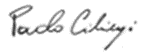 Paolo Ciliegi